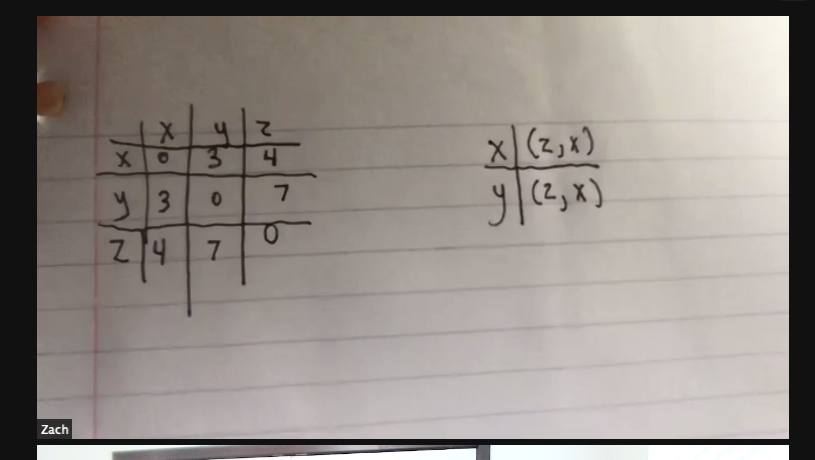 x y z
x 0 3 4
y 3 0 7
z 4 7 0
x (z, x)
y (z, x)
Zach